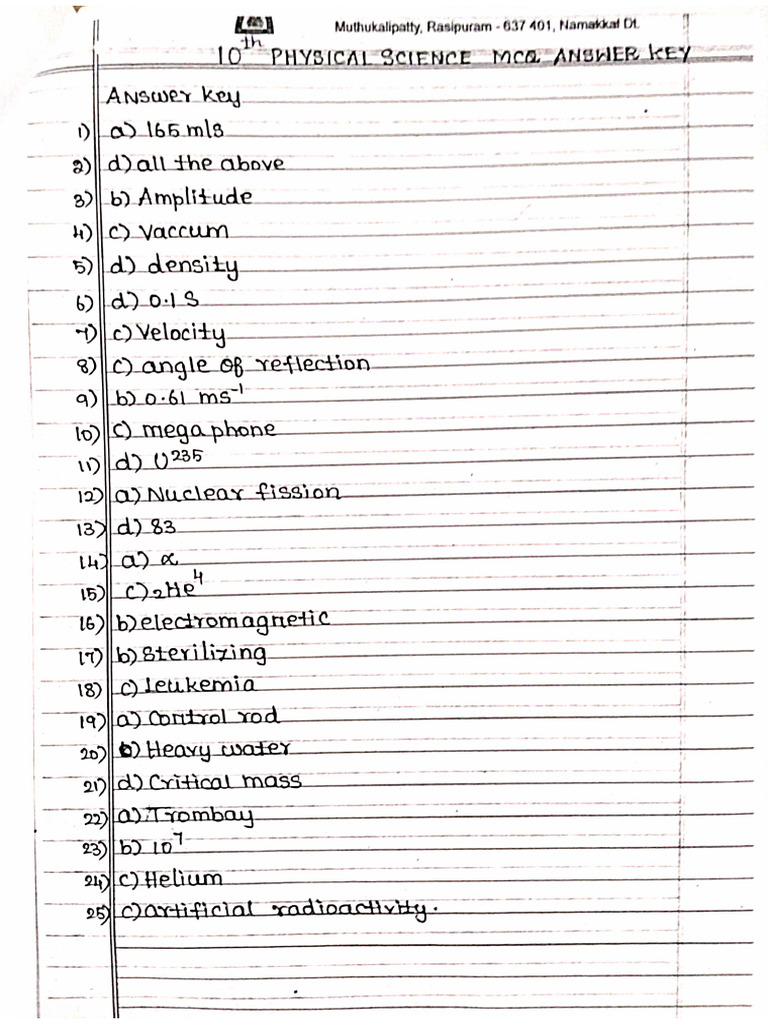 Muthukalipatty, Rasipuram - 637 401, Namakkal Dt.
10th PHYSICAL SCIENCE MCQ ANSWER KEY
Answer key
1) a) 165 m/s
2) d) all the above
3) b) Amplitude
4) c) Vaccum
5) d) density
6) d) 0.1 S
7) c) Velocity
8) c) angle of reflection
9) b) 0.61 ms⁻¹
10) c) megaphone
11) d) U²³⁵
12) a) Nuclear fission
13) d) 83
14) a) α
15) c) ₂He⁴
16) b) electromagnetic
17) b) Sterilizing
18) c) Leukemia
19) a) Control rod
20) b) Heavy water
21) d) Critical mass
22) a) Trombay
23) b) 10⁷
24) c) Helium
25) c) artificial radioactivity.